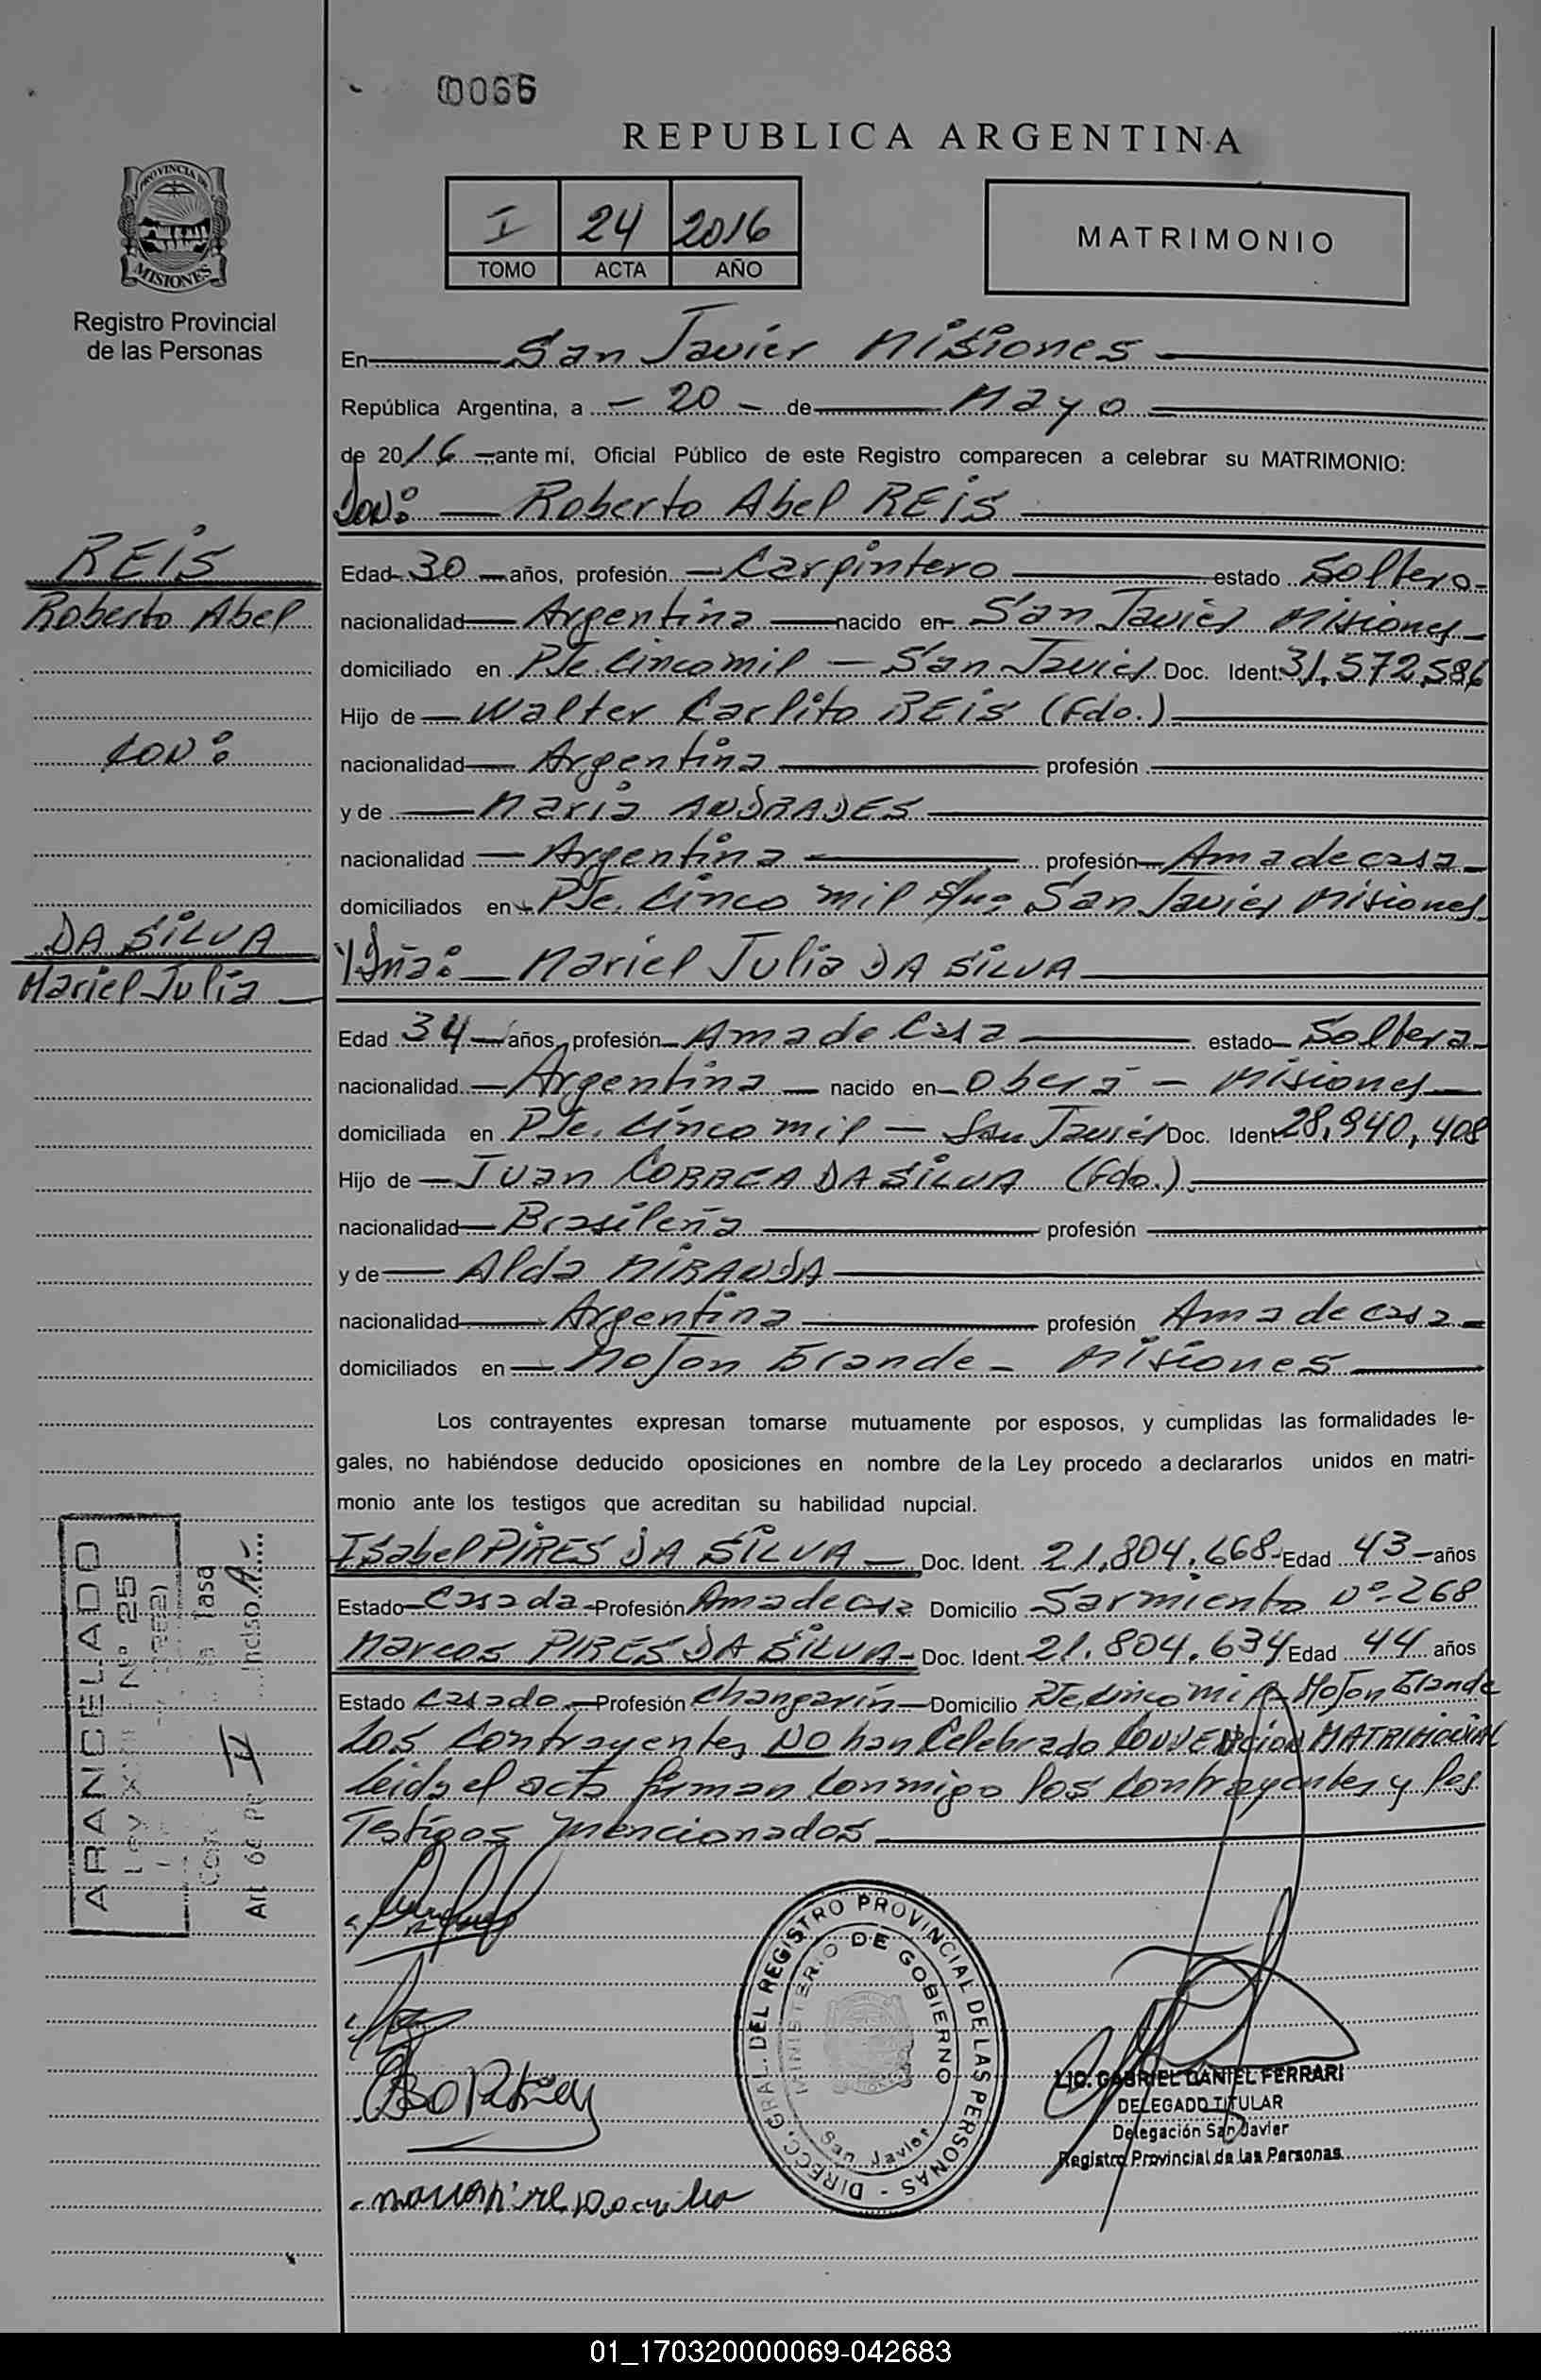 0066
REPUBLICA ARGENTINA
PROVINCIA DE
MISIONES
Registro Provincial
de las Personas
I 24 2016
TOMO ACTA AÑO
MATRIMONIO
En San Javier Misiones
República Argentina, a - 20 - de Mayo
de 2016 ante mí, Oficial Público de este Registro comparecen a celebrar su MATRIMONIO:
Don: Roberto Abel REIS
REIS
Roberto Abel
CON:
DA SILVA
Mariel Julia
Edad 30 años, profesión Carpintero estado Soltero
nacionalidad Argentina nacido en San Javier Misiones
domiciliado en Pje. Cinco mil - San Javier Doc. Ident. 31.572.586
Hijo de Walter Carlito REIS (Fdo.)
nacionalidad Argentina profesión
y de Maria ANDRADES
nacionalidad Argentina profesión Ama de casa
domiciliados en Pje. Cinco mil San Javier Misiones
Y Dña: Mariel Julia DA SILVA
Edad 34 años, profesión Ama de Casa estado Soltera
nacionalidad Argentina nacido en Oberá - Misiones
domiciliada en Pje. Cinco mil - San Javier Doc. Ident. 28.940.408
Hijo de Juan CORREA DA SILVA (Fdo.)
nacionalidad Brasileña profesión
y de Alda MIRANDA
nacionalidad Argentina profesión Ama de casa
domiciliados en Mojon Grande - Misiones
Los contrayentes expresan tomarse mutuamente por esposos, y cumplidas las formalidades le-
gales, no habiéndose deducido oposiciones en nombre de la Ley procedo a declararlos unidos en matri-
monio ante los testigos que acreditan su habilidad nupcial.
Isabel PIRES DA SILVA Doc. Ident. 21.804.668 Edad 43 años
Estado Casada Profesión Ama de casa Domicilio Sarmiento Nº 268
Marcos PIRES DA SILVA Doc. Ident. 21.804.634 Edad 44 años
Estado Casado Profesión Changarín Domicilio Pje. Cinco mil Mojon Grande
Los Contrayentes NO han Celebrado CONVENCION MATRIMONIAL
Leida el acta firman conmigo los contrayentes y los
Testigos mencionados
ARANCELADO
Nº 25
Tasa
Inciso A
Art. 6
DIRECC. GRAL. DEL REGISTRO PROVINCIAL DE LAS PERSONAS
MINISTERIO DE GOBIERNO
San Javier
LIC. GABRIEL DANIEL FERRARI
DELEGADO TITULAR
Delegación San Javier
Registro Provincial de las Personas
01_170320000069-042683